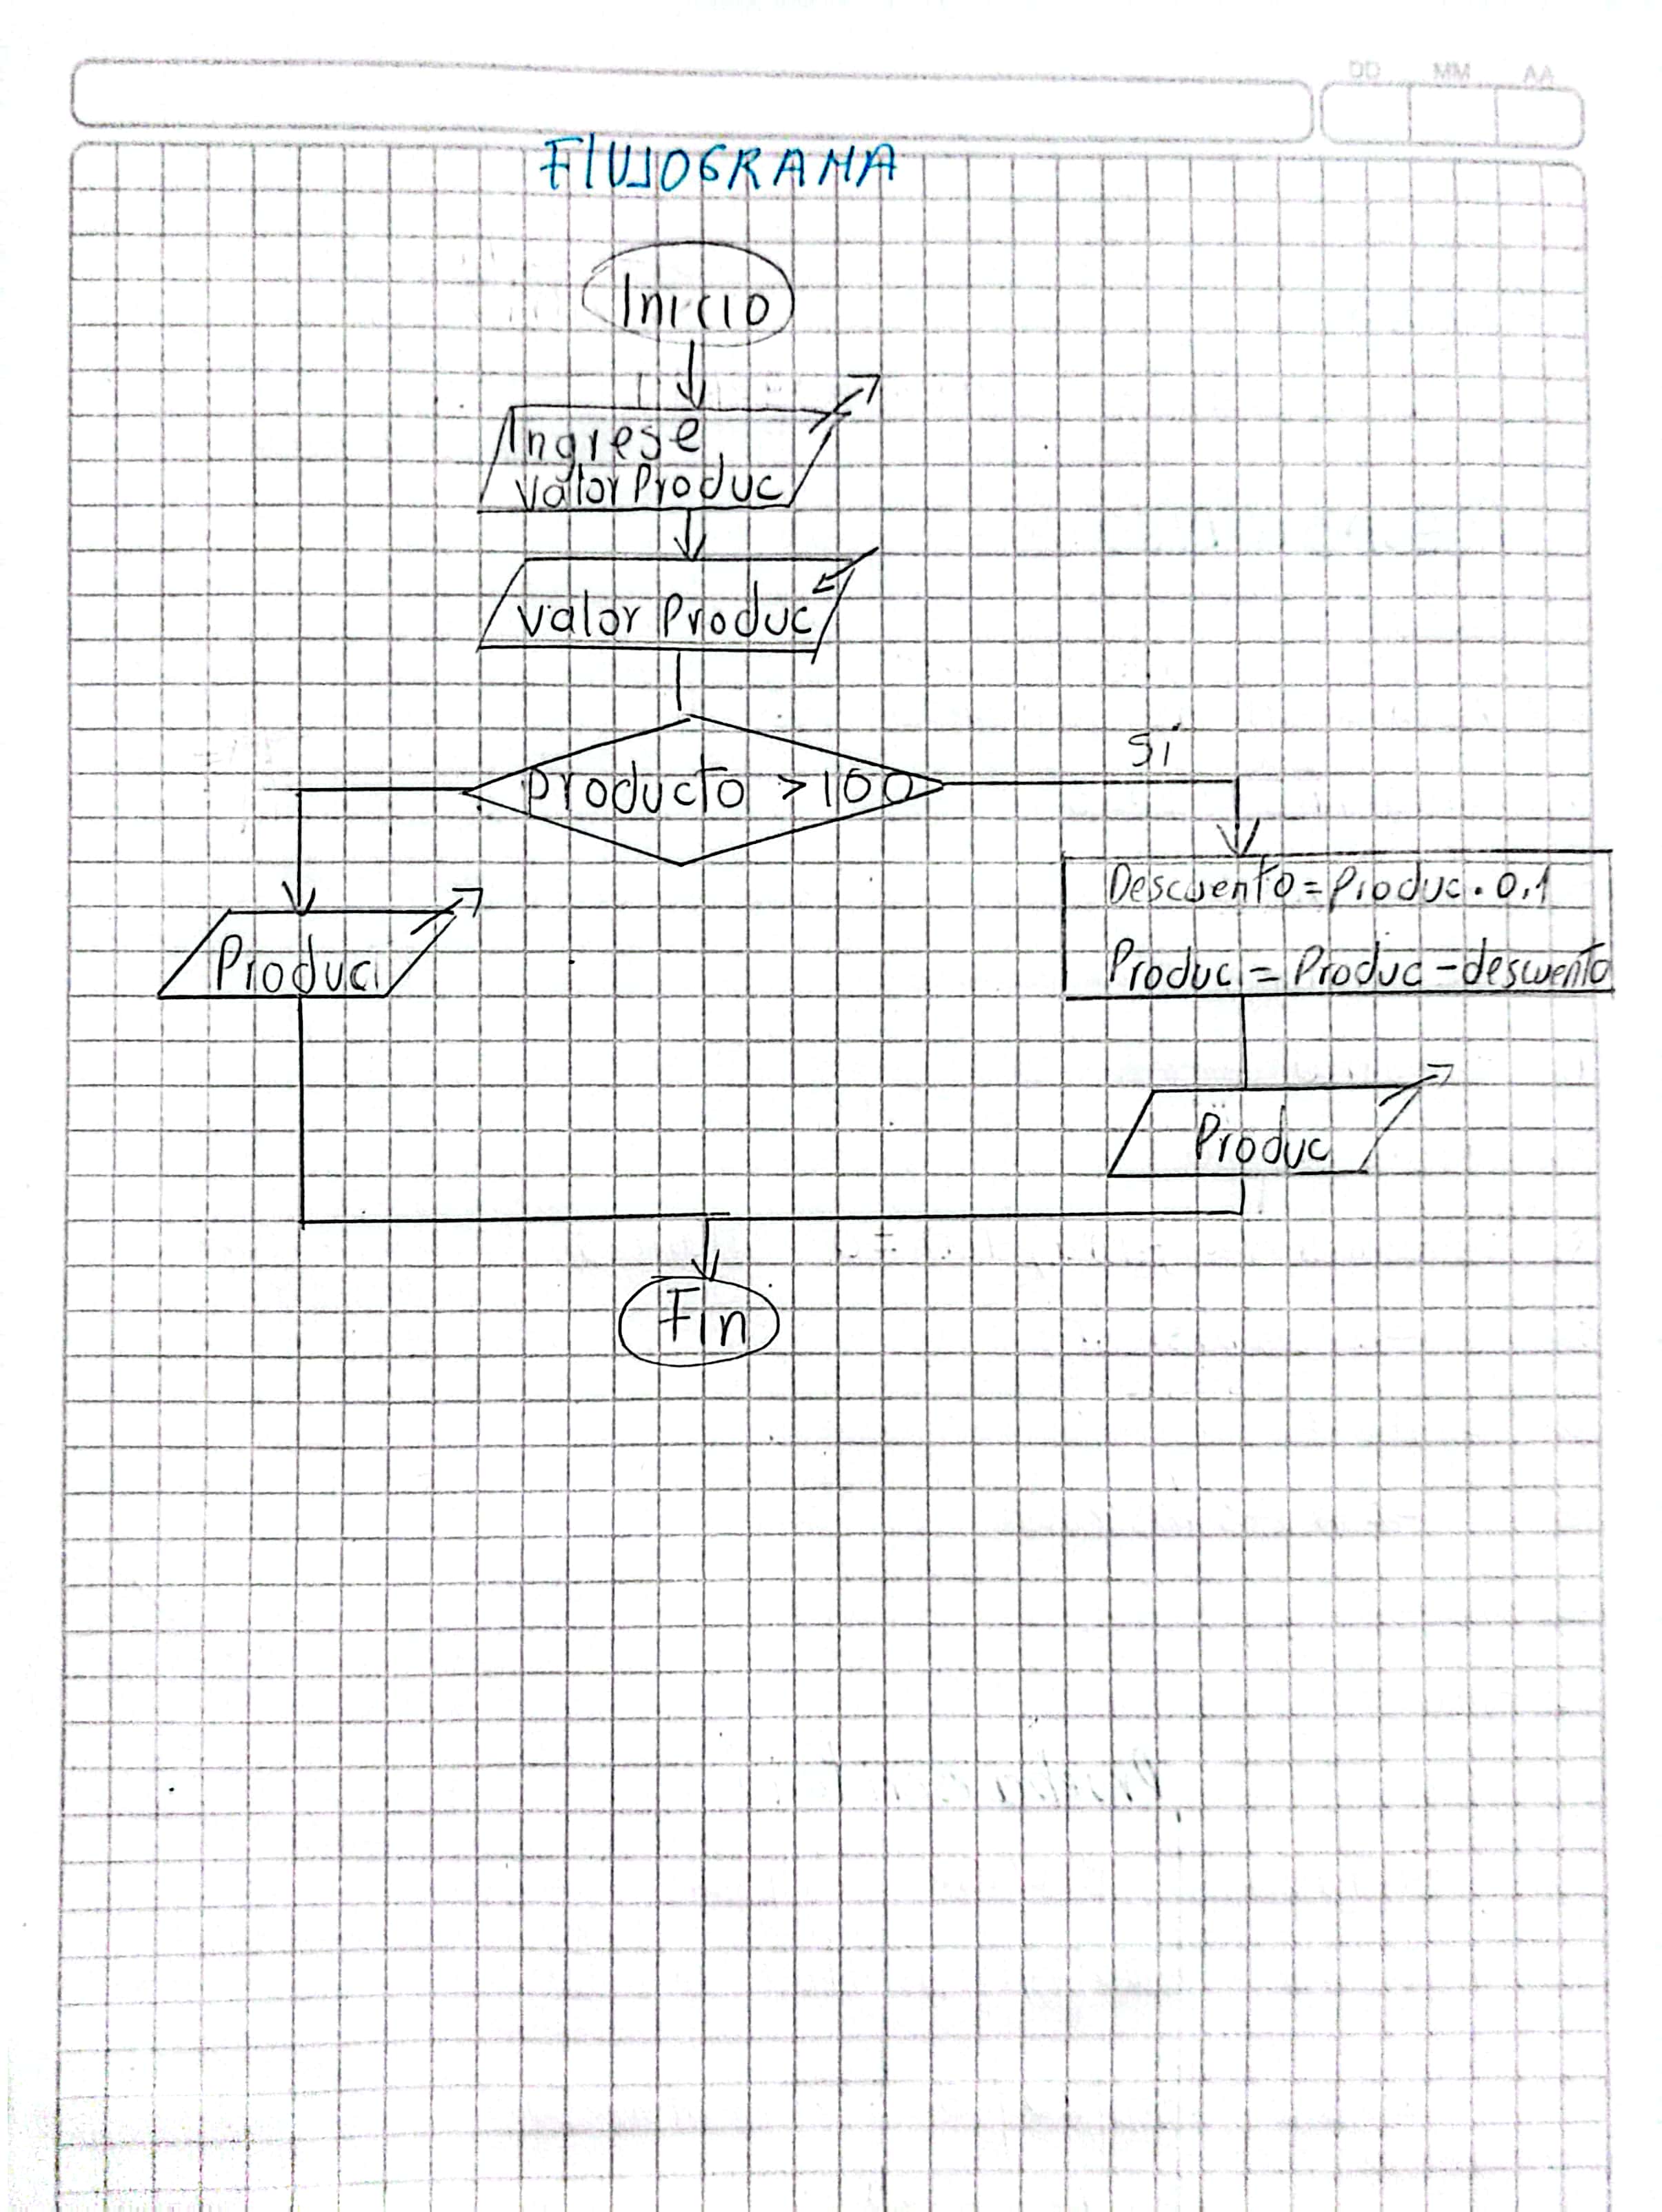 DD MM AA
FlUJOGRAMA
Inicio
Ingrese
valor Produc
valor Produc
producto > 100
si
Descuento = Produc . 0.1
Produc = Produc - descuento
Produc
Produc
Fin